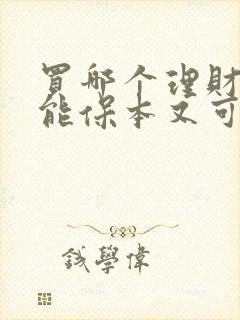 買哪个理財
能保本又可
钱學偉